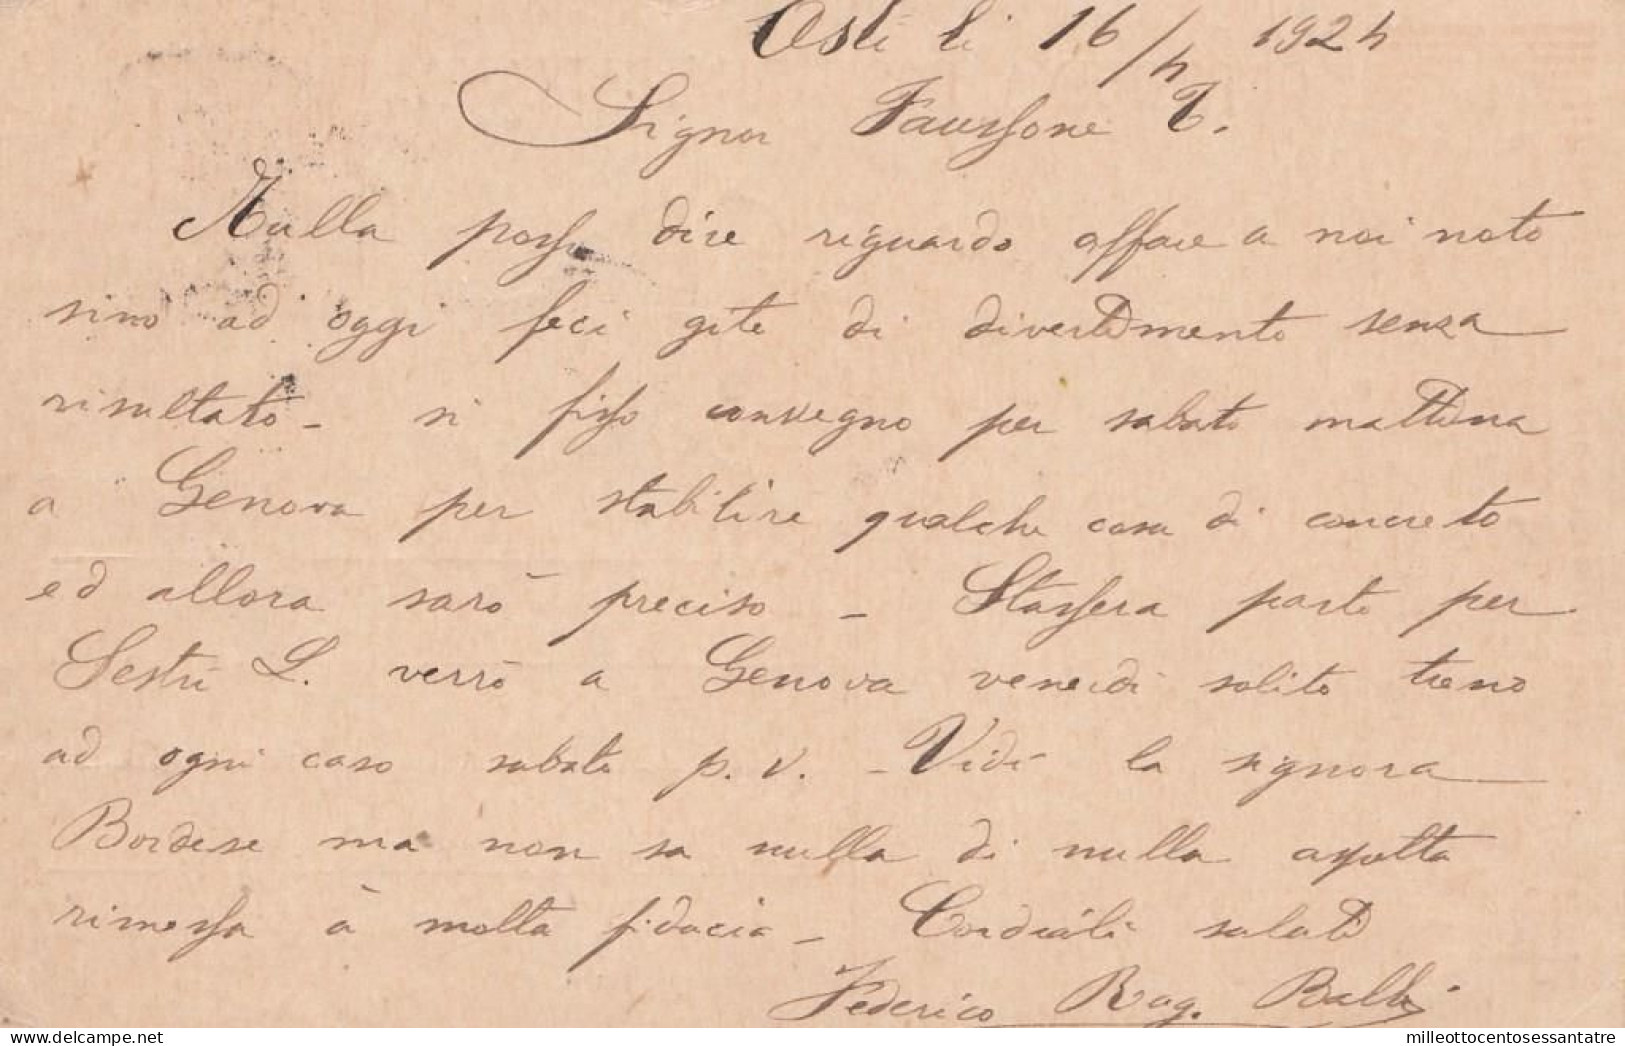 Asti li 16/4 1924
Signor Faussone T.
Nulla posso dire riguardo affare a noi noto
sino ad oggi feci gite di divertimento senza
risultato - si fisso convegno per sabato mattina
a Genova per stabilire qualche cosa di concreto
ed allora sarò preciso - Stassera parto per
Sestri L. verrò a Genova venerdi solito treno
ad ogni caso sabato p. v. - Vidi la signora
Bordese ma non sa nulla di nulla aspetta
rimessa à molta fiducia - Cordiali saluti
Federico Rag. Balbi
milleottocentosessantatre